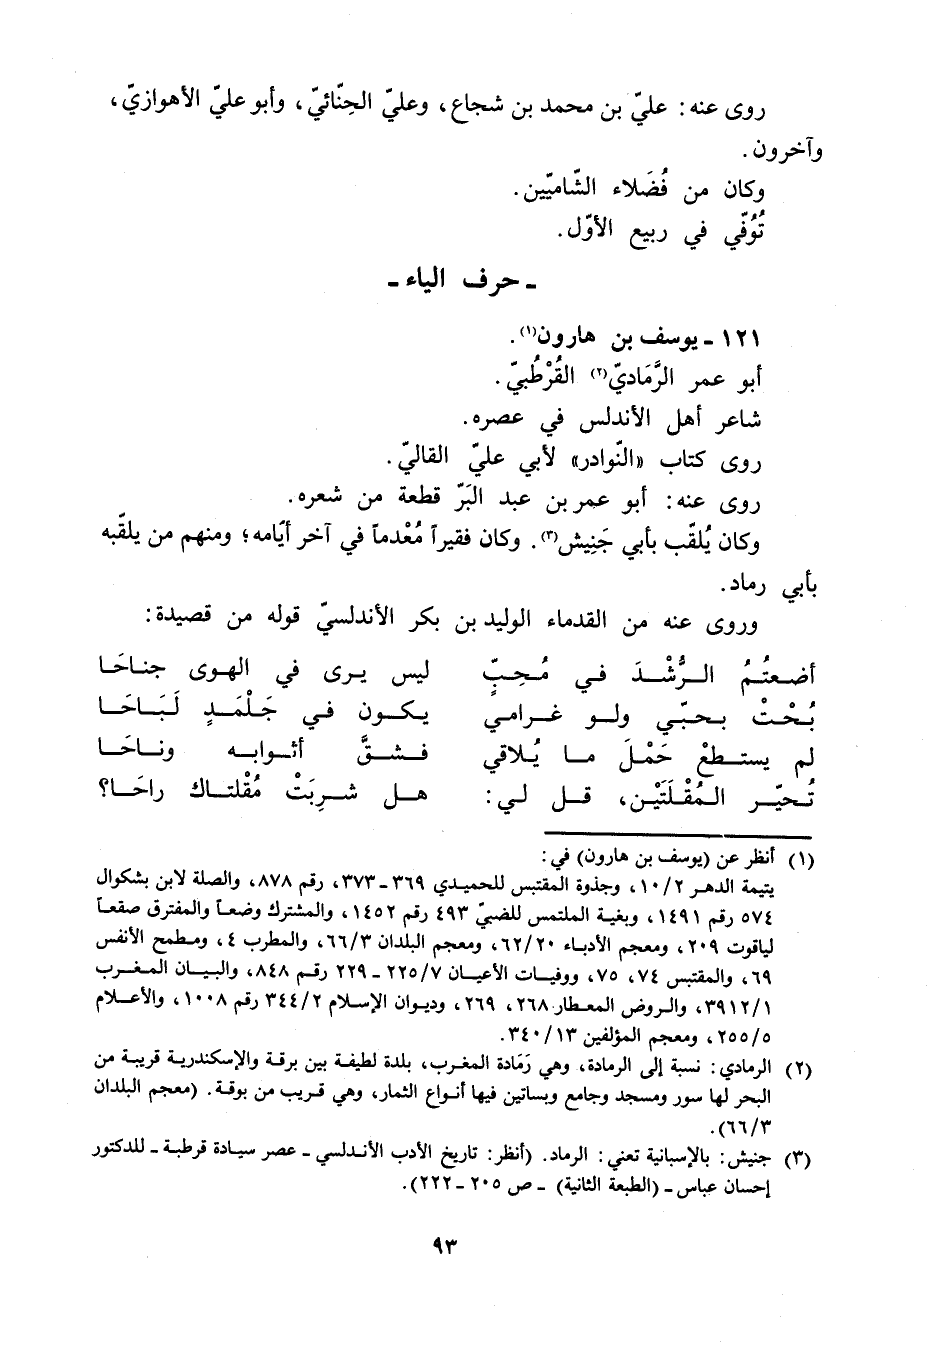 روى عنه: عليّ بن محمد بن شجاع، وعليّ الحِنّائيّ، وأبو عليّ الأهوازيّ،
وآخرون.
وكان من فُضَلاء الشّاميّين.
تُوُفّي في ربيع الأوّل.
ـ حرف الياء ـ
١٢١ ـ يوسف بن هارون(١).
أبو عمر الرَّمَاديّ(٢) القُرْطُبيّ.
شاعر أهل الأندلس في عصره.
روى كتاب «النّوادر» لأبي عليّ القاليّ.
روى عنه: أبو عمر بن عبد البَرّ قطعة من شعره.
وكان يُلقّب بأبي جَنِيش(٣). وكان فقيراً مُعْدماً في آخر أيّامه؛ ومنهم من يلقّبه
بأبي رماد.
وروى عنه من القدماء الوليد بن بكر الأندلسيّ قوله من قصيدة:
أضعتُمُ الرُّشْدَ في مُحِبٍّ ليس يرى في الهوى جناحَا
بُحْتْ بحبّي ولو غرامي يكون في جَلْمَدٍ لَبَاحَا
لم يستطعْ حَمْلَ ما يُلاقي فشقَّ أثوابه وناحَا
تُحيّر المُقْلَتَيْن، قل لي: هل شربَتْ مُقْلتاك راحَا؟
(١) أنظر عن (يوسف بن هارون) في:
يتيمة الدهر ١٠/٢، وجذوة المقتبس للحميدي ٣٦٩ـ٣٧٣، رقم ٨٧٨، والصلة لابن بشكوال
٥٧٤ رقم ١٤٩١، وبغية الملتمس للضبيّ ٤٩٣ رقم ١٤٥٢، والمشترك وضعاً والمفترق صقعاً
لياقوت ٢٠٩، ومعجم الأدباء ٦٢/٢٠، ومعجم البلدان ٦٦/٣، والمطرب ٤، ومطمح الأنفس
٦٩، والمقتبس ٧٤، ٧٥، ووفيات الأعيان ٢٢٥/٧ ـ ٢٢٩ رقم ٨٤٨، والبيان المغرب
٣٩١٢/١، والروض المعطار ٢٦٨، ٢٦٩، وديوان الإسلام ٣٤٤/٢ رقم ١٠٠٨، والأعلام
٢٥٥/٥، ومعجم المؤلفين ٣٤٠/١٣.
(٢) الرمادي: نسبة إلى الرمادة، وهي رَمَادة المغرب، بلدة لطيفة بين برقة والإسكندرية قريبة من
البحر لها سور ومسجد وجامع وبساتين فيها أنواع الثمار، وهي قريب من بوقة. (معجم البلدان
٦٦/٣).
(٣) جنيش: بالإسبانية تعني: الرماد. (أنظر: تاريخ الأدب الأندلسي ـ عصر سيادة قرطبة ـ للدكتور
إحسان عباس ـ (الطبعة الثانية) ـ ص ٢٠٥ ـ ٢٢٢).
٩٣